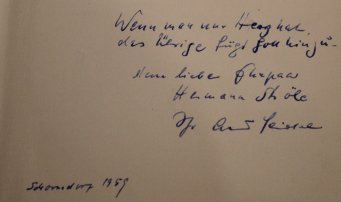 Wenn man nur Herz hat,
das Übrige fügt Gott hinzu.
liebe Ehepaar
Hermann Ströle
Ihr
Schorndorf 1959